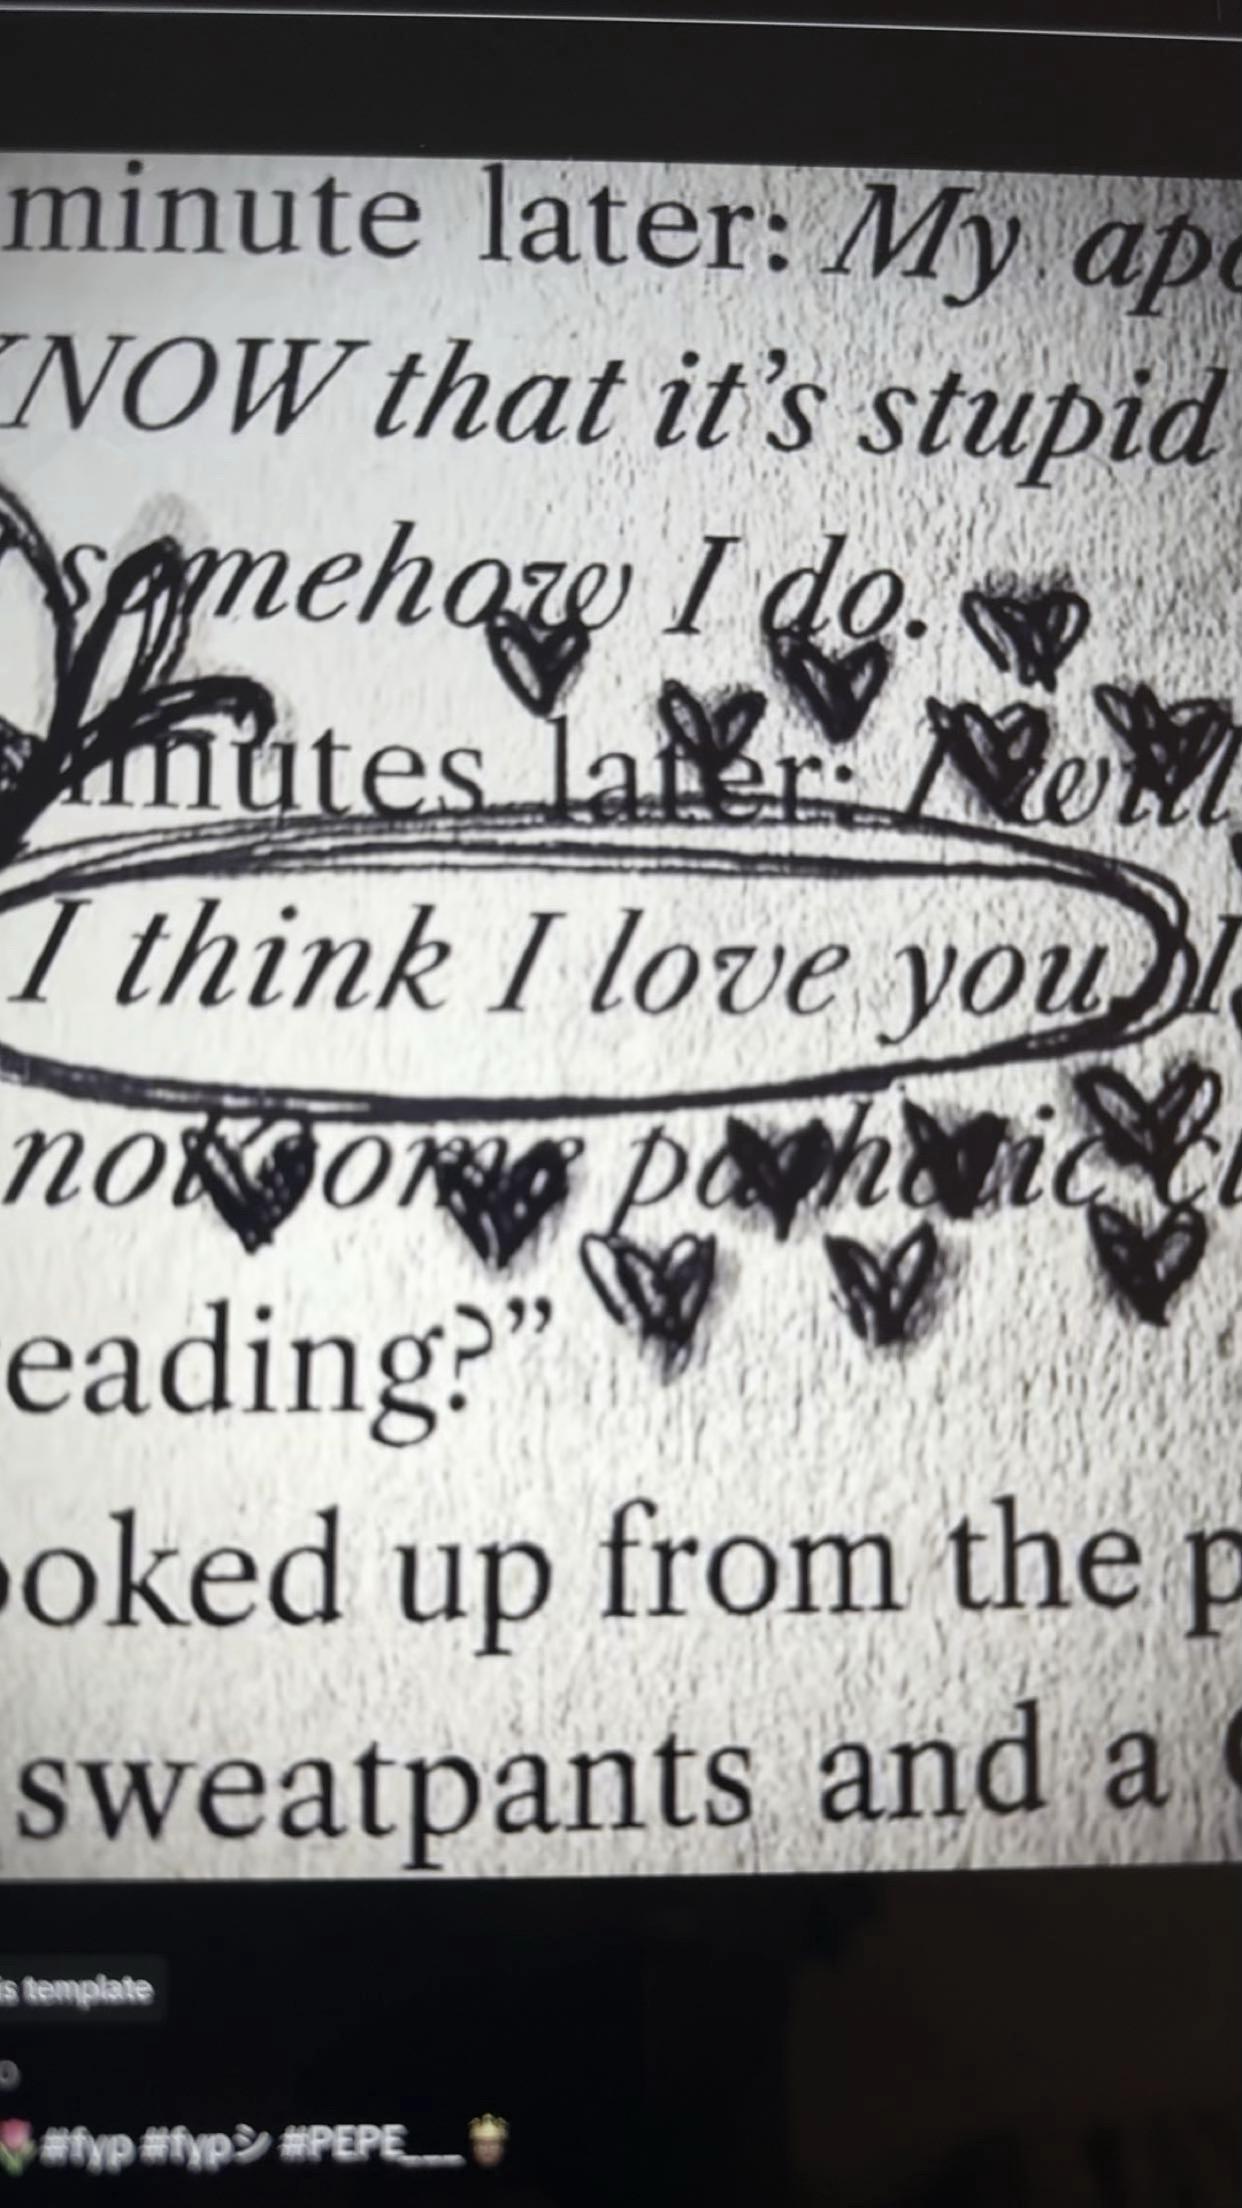 minute later: My apo
KNOW that it's stupid
somehow I do.
inutes later: I will
I think I love you. I
not some pathetic cl
eading?"
ooked up from the p
sweatpants and a
is template
#fyp #fypシ #PEPE__